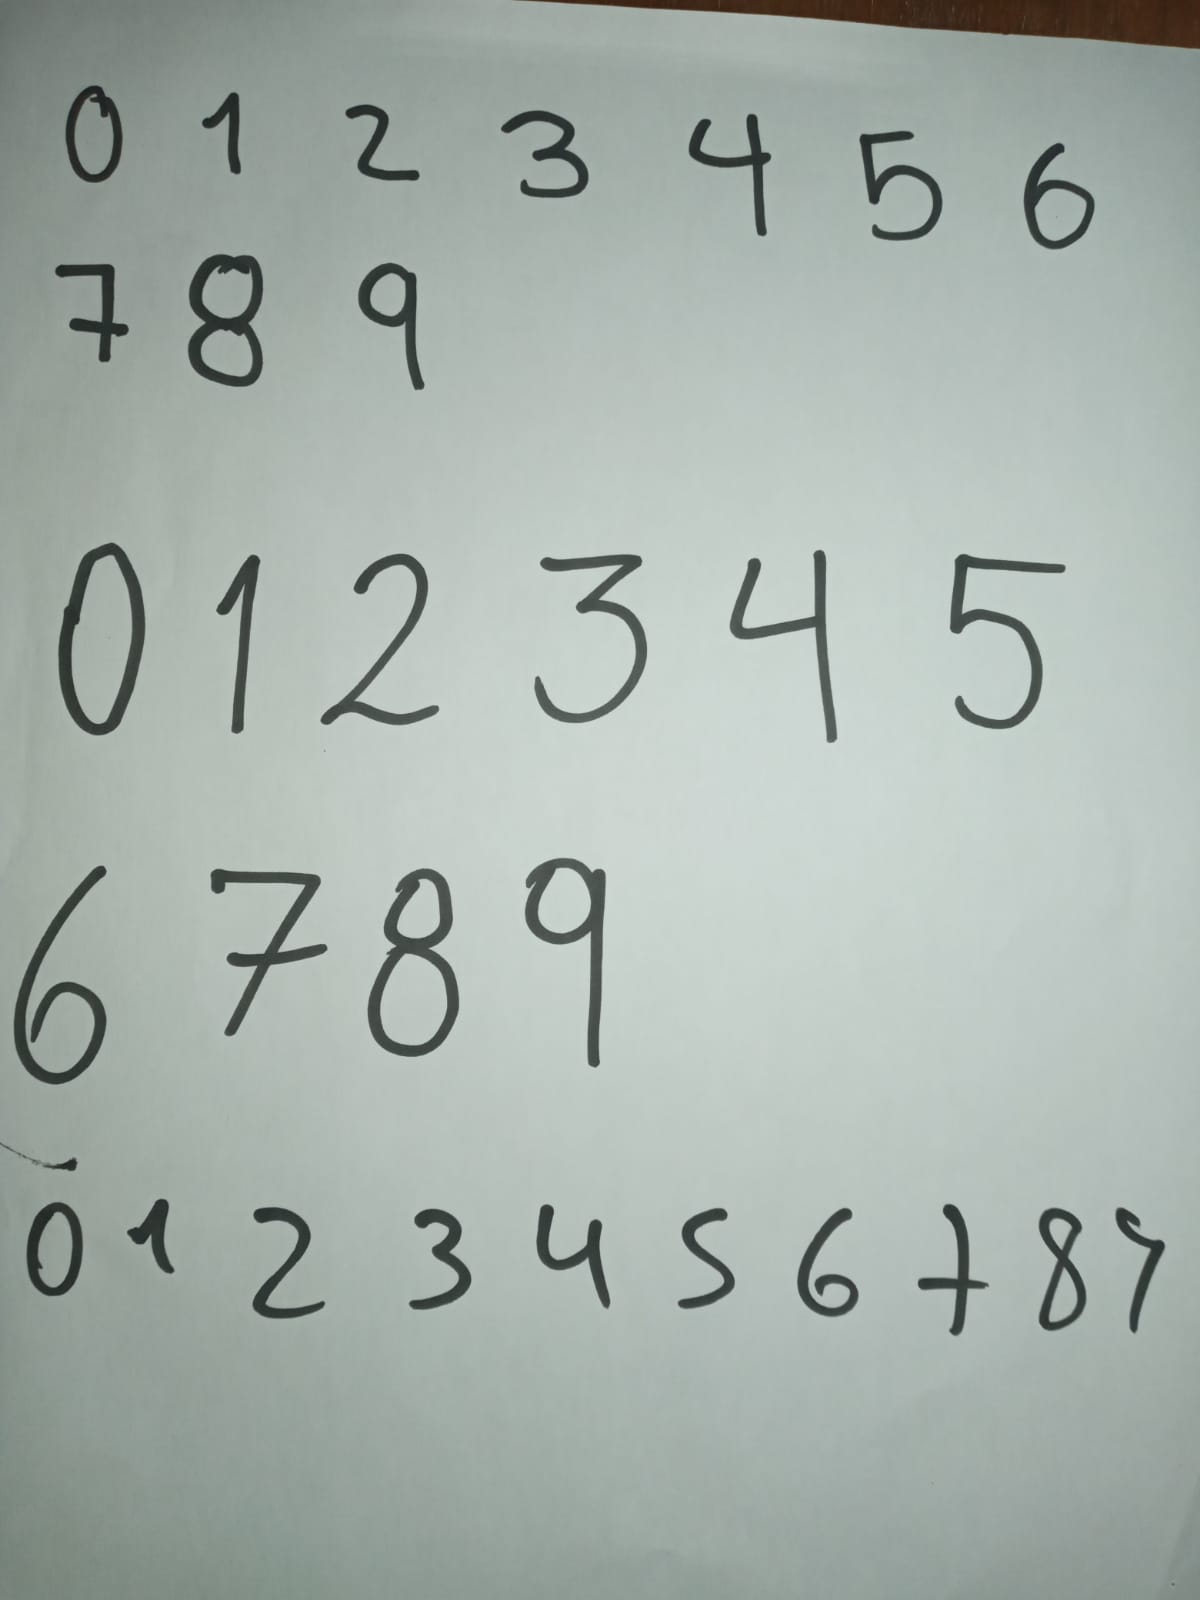 0 1 2 3 4 5 6
7 8 9
0 1 2 3 4 5
6 7 8 9
0 1 2 3 4 5 6 7 8 9